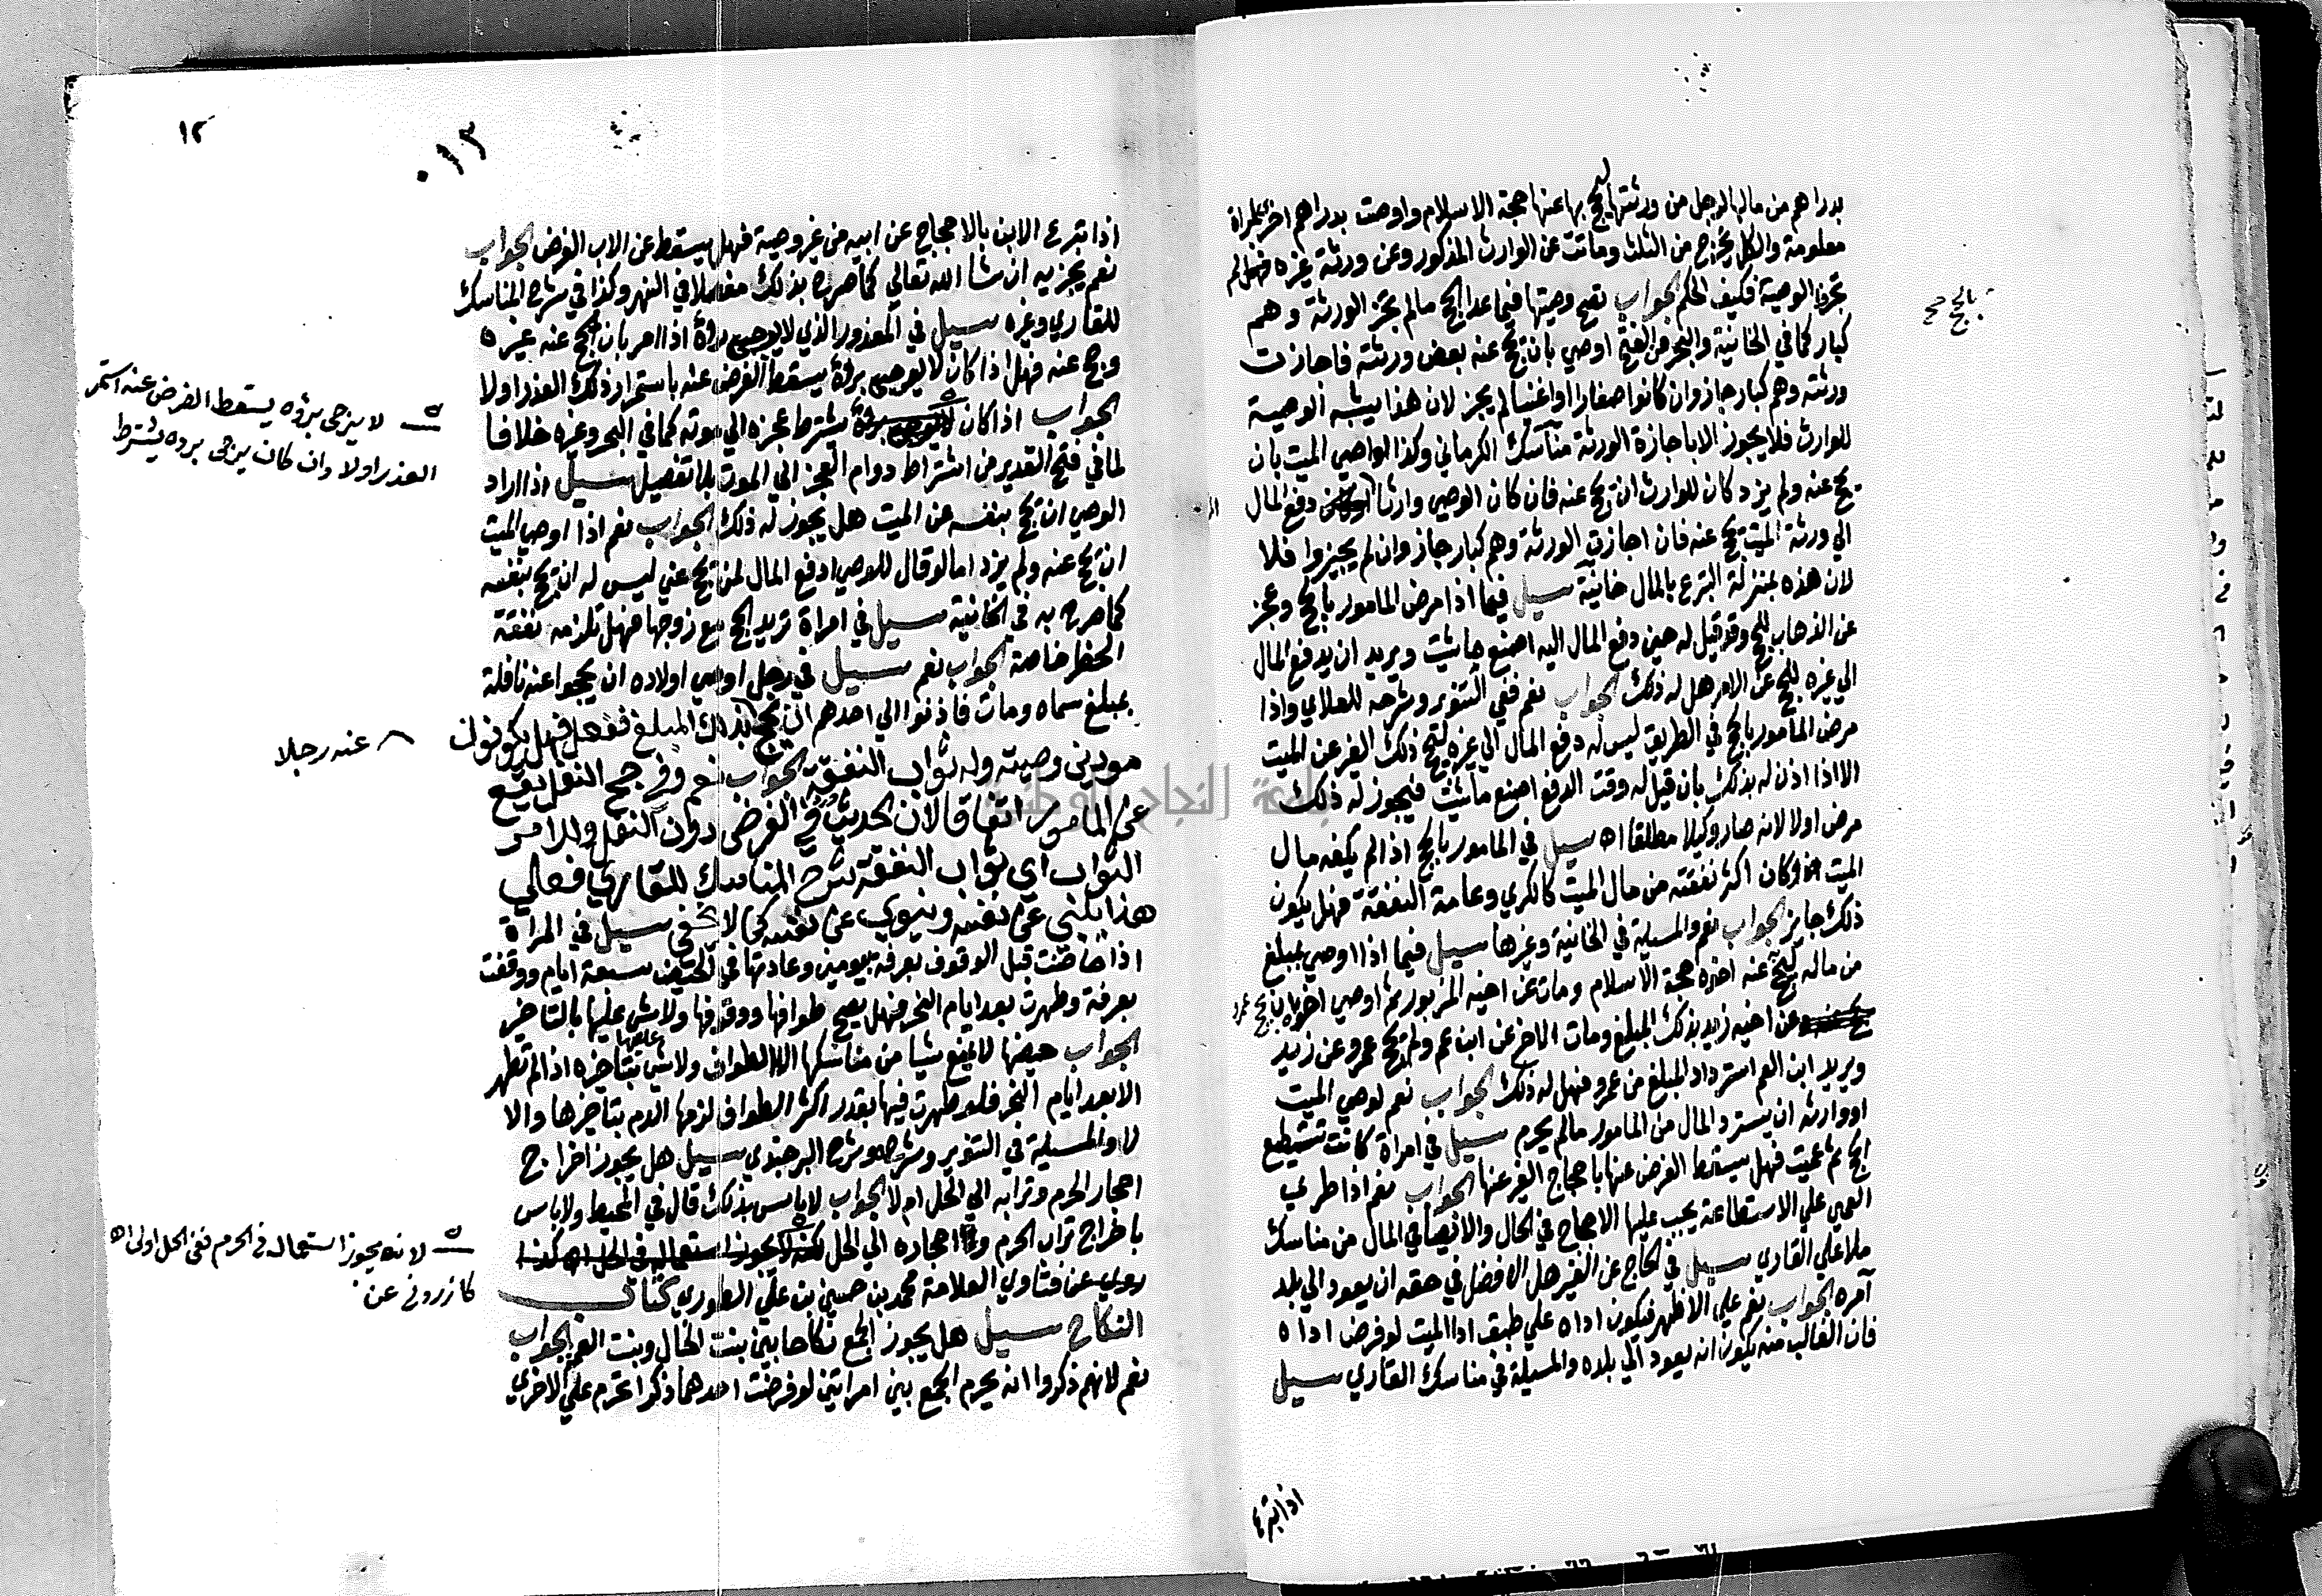 بدراهم من مالها لرجل من ورثتها ليحج بها عنها حجة الاسلام واوصت بدراهم اخر لامراة
معلومة والكل يخرج من الثلث وماتت عن الوارث المذكور وعن ورثة غيره فهل لم
تجزوا الوصية فكيف الحكم الجواب تصح وصيتها فيما عدا الحج مالم تجز الورثة وهم
كبار كما في الخانية والبحر عن الفتح اوصي بان يحج عنه بعض ورثته فاجازت
ورثته وهم كبار جاز وان كانوا صغارا او اغنيا لم يجز لان هذا يشبه الوصية
للوارث فلا يجوز الا باجازة الورثة مناسك الكرماني وكذا لو اوصي الميت بان
يحج عنه ولم يزد كان للوارث ان يحج عنه فان كان الوصي وارثا دفع المال
الي ورثة الميت يحج عنه فان اجازت الورثة وهم كبار جاز وان لم يجيزوا فلا
لان هذه بمنزلة التبرع بالمال خانية سيل فيما اذا مرض المامور بالحج وعجز
عن الذهاب للحج وقد قيل له حين دفع المال اليه اصنع ماشيت ويريد ان يدفع المال
الي غيره ليحج عن الامر هل له ذلك الجواب نعم ففي التنوير وشرحه للعلاي واذا
مرض المامور بالحج في الطريق ليس له دفع المال الي غيره ليحج ذلك الغير عن الميت
الا اذا اذن له بذلك بان قيل له وقت الدفع اصنع ماشئت فيجوز له ذلك
مرض اولا لانه صار وكيلا مطلقا اه سيل في المامور بالحج اذا لم يكفه مال
الميت وكان اكثر نفقته من مال الميت كالكري وعامة النفقة فهل يكون
ذلك جايز الجواب نعم والمسيلة في الخانية وغيرها سيل فيما اذا اوصي بمبلغ
من ماله ليحج عنه اخوه حجة الاسلام ومات عن اخيه المزبور ثم اوصي اخوه بان يحج عمرو
عن اخيه زيد بذلك المبلغ ومات الاخ عن ابن عم ولم يحج عمرو عن زيد
ويريد ابن العم استرداد المبلغ من عمرو فهل له ذلك الجواب نعم لوصي الميت
او وارثه ان يسترد المال من المامور مالم يحرم سيل في امراة كانت تستطيع
الحج ثم عميت فهل يسقط الفرض عنها باحجاج الغير عنها الجواب نعم اذا طري
العمي علي الاستطاعة يجب عليها الاحجاج في الحال والايصا في المال من مناسك
ملا علي القاري سيل في الحاج عن الغير هل الافضل في حقه ان يعود الي بلد
آمره الجواب نعم علي الاظهر فيكون اداه علي طبق ادا الميت لو فرض اداه
فان الغالب منه يكون انه يعود الي بلده والمسيلة في مناسك القاري سيل
اذا تبرع
بالحج صح
١٢
٠١٣
اذا تبرع الابن بالاحجاج عن ابيه من غير وصية فهل يسقط عن الاب الفرض الجواب
نعم يجزيه ان شا الله تعالي كما صرح بذلك مفصلا في النهر وكذا في شرح المناسك
للقاري وغيره سيل في المعذور الذي لا يرجي برؤه اذا امر بان يحج عنه غيره
وحج عنه فهل اذا كان لا يرجي برؤه يسقط الفرض عنه باستمرار ذلك العذر اولا
الجواب اذا كان يشترط عجزه الي موته كما في البحر وغيره خلافا
لما في فتح القدير من اشتراط دوام العجز الي الموت بلا تفصيل سيل اذا اراد
الوصي ان يحج بنفسه عن الميت هل يجوز له ذلك الجواب نعم اذا اوصي الميت
ان يحج عنه ولم يزد اما لو قال للوصي ادفع المال لمن يحج عني ليس له ان يحج بنفسه
كما صرح به في الخانية سيل في امراة تريد الحج مع زوجها فهل تلزمه نفقة
الحضر خاصة الجواب نعم سيل في رجل اوصي اولاده ان يحجوا عنه نافلة
بمبلغ سماه ومات فاذنوا الي احدهم ان يحج بذلك المبلغ ففعل فهل يكونون
مودين وصيته وله ثواب النفقة الجواب نعم وفي حج النفل يقع
عن المامور اتفاقا لان الحديث في الفرض دون النفل وللامر
الثواب اي ثواب النفقة شرح المناسك للقاري فعلي
هذا يلبي عن نفسه وينوي عن نفسه كما لا يخفي سيل في المراة
اذا حاضت قبل الوقوف بعرفة بيومين وعادتها في الحيض سبعة ايام ووقفت
بعرفة وطهرت بعد ايام النحر فهل يصح طوافها ووقوفها ولا شي عليها بالتاخير
الجواب حيضها لا يمنع شيا من مناسكها الا الطواف ولا شي عليها بتاخيره اذا لم تطهر
الا بعد ايام النحر فلو طهرت فيها بقدر اكثر الطواف لزمها الدم بتاخيرها والا
لا والمسيلة في التنوير وشرحه وشرح البرجندي سيل هل يجوز اخراج
احجار الحرم وترابه الي الحل ام لا الجواب لا باس بذلك قال في المحيط ولا باس
باخراج تراب الحرم واحجاره الي الحل
روي عن فتاوي العلامة محمد بن حسين بن علي الطوري كتاب
النكاح سيل هل يجوز الجمع نكاحا بين بنت الخال وبنت العم الجواب
نعم لانهم ذكروا انه يحرم الجمع بين امراتين لو فرضت احدهما ذكرا تحرم علي الاخري
لا يرجى برؤه يسقط الفرض عنه استمر
العذر اولا وان كان يرجى بروه يشترط
عنه رجلا
لانه يجوز استعماله في الحرم ففي الحل اولى اه
كازروني عن
جامعة النجاح الوطنية